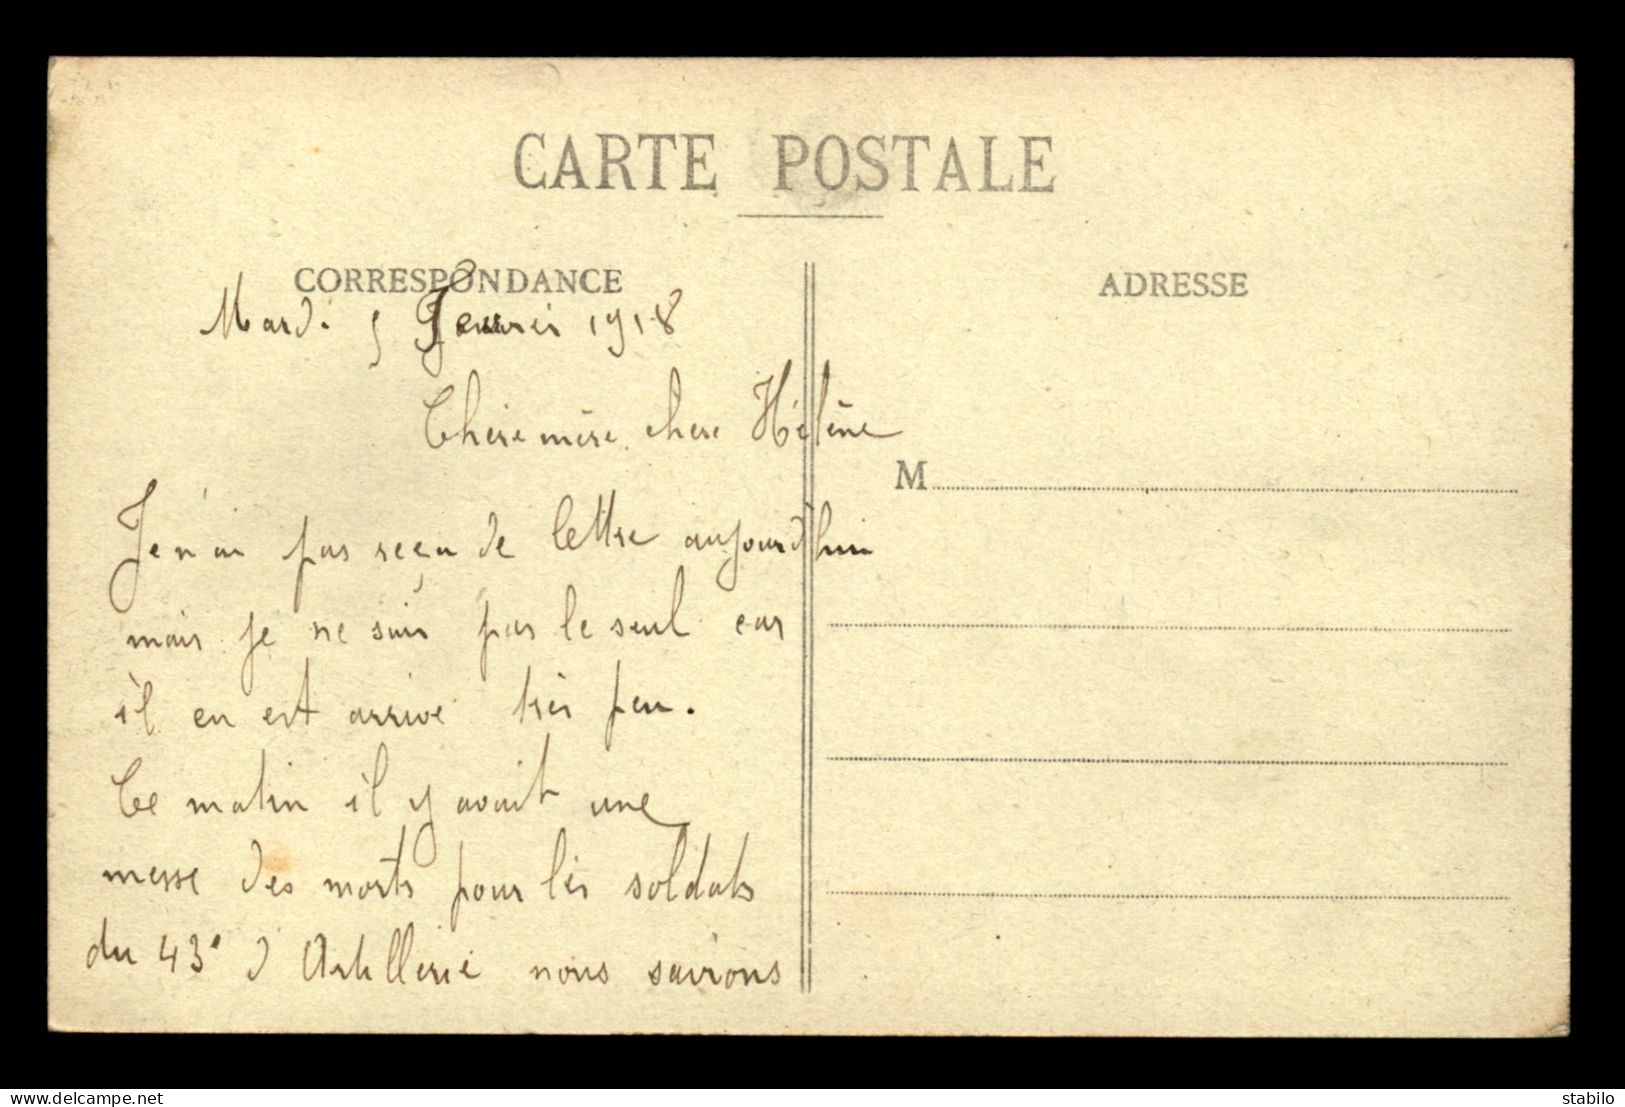 CARTE POSTALE
CORRESPONDANCE
ADRESSE
Mardi 5 Fevrier 1918
Chère mère chere Hélène
M
Je n'ai pas reçu de lettre aujourd'hui
mais je ne suis pas le seul car
il en est arrivé très peu.
Ce matin il y avait une
messe des morts pour les soldats
du 43e d'Artillerie nous
delcampe.net
stabilo